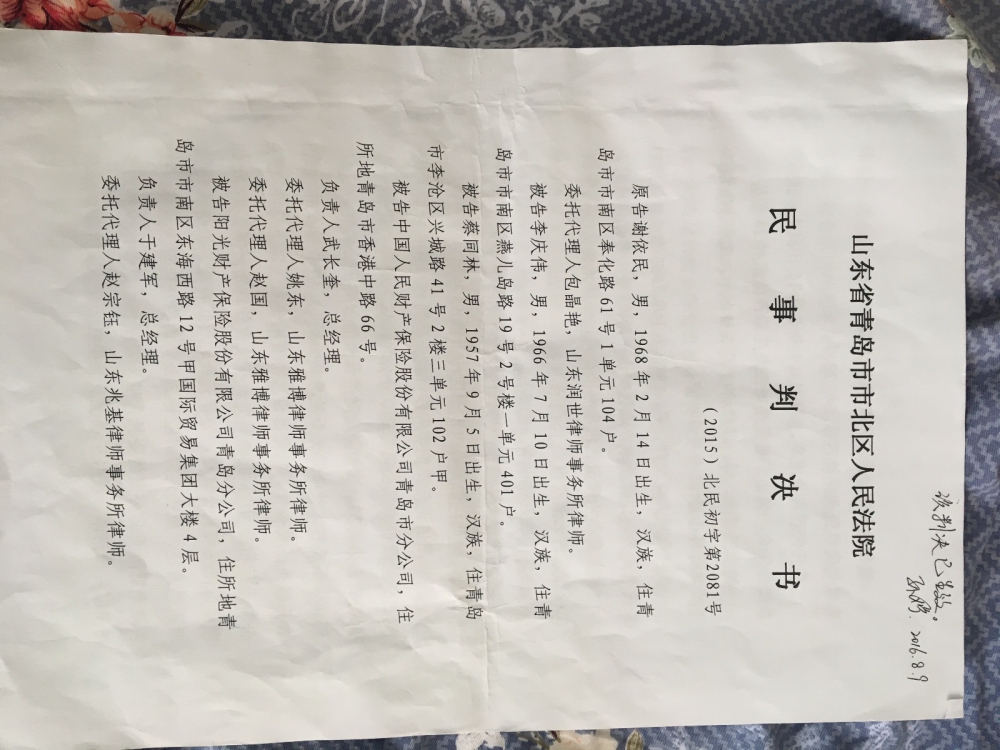 该判决已生效。
孙鹏. 2016.8.9
山东省青岛市市北区人民法院
民事判决书
（2015）北民初字第2081号
原告谢依民，男，1968年2月14日出生，汉族，住青
岛市市南区奉化路61号1单元104户。
委托代理人包晶艳，山东润世律师事务所律师。
被告李庆伟，男，1966年7月10日出生，汉族，住青
岛市市南区燕儿岛路19号2号楼一单元401户。
被告蔡同林，男，1957年9月5日出生，汉族，住青岛
市李沧区兴城路41号2楼三单元102户甲。
被告中国人民财产保险股份有限公司青岛市分公司，住
所地青岛市香港中路66号。
负责人武长奎，总经理。
委托代理人姚东，山东雅博律师事务所律师。
委托代理人赵国，山东雅博律师事务所律师。
被告阳光财产保险股份有限公司青岛分公司，住所地青
岛市市南区东海西路12号甲国际贸易集团大楼4层。
负责人于建军，总经理。
委托代理人赵宗钰，山东兆基律师事务所律师。